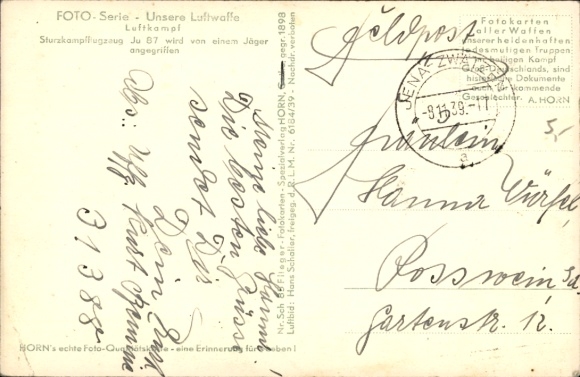 FOTO-Serie - Unsere Luftwaffe
Luftkampf
Sturzkampfflugzeug Ju 87 wird von einem Jäger
angegriffen
Meine liebe Hanna!
Die besten Grüsse
sendet Dir
Dein Kurt
Abs.: Uffz. Kurt
31388
Nr. Sch 86 Flieger-Fotokarten - Spezialverlag HORN, gegr. 1898
Luftbild: Hans Schaller, freigeg. d. R. L. M. Nr. 6184/39. Nachdr. verboten
HORN's echte Foto-Qualitätskarte - eine Erinnerung für's Leben!
Feldpost
Fotokarten
aller Waffen
unserer heldenhaften
todesmutigen Truppen
im heiligen Kampf
Deutschlands, sind
historische Dokumente
auch f. kommende
Geschlechter. A. HORN
JENA-ZWÄTZEN
-8.11.39.-11
a
5,-
Fräulein
Hanna Würfel
Rosswein Sa.
Gartenstr. 12.